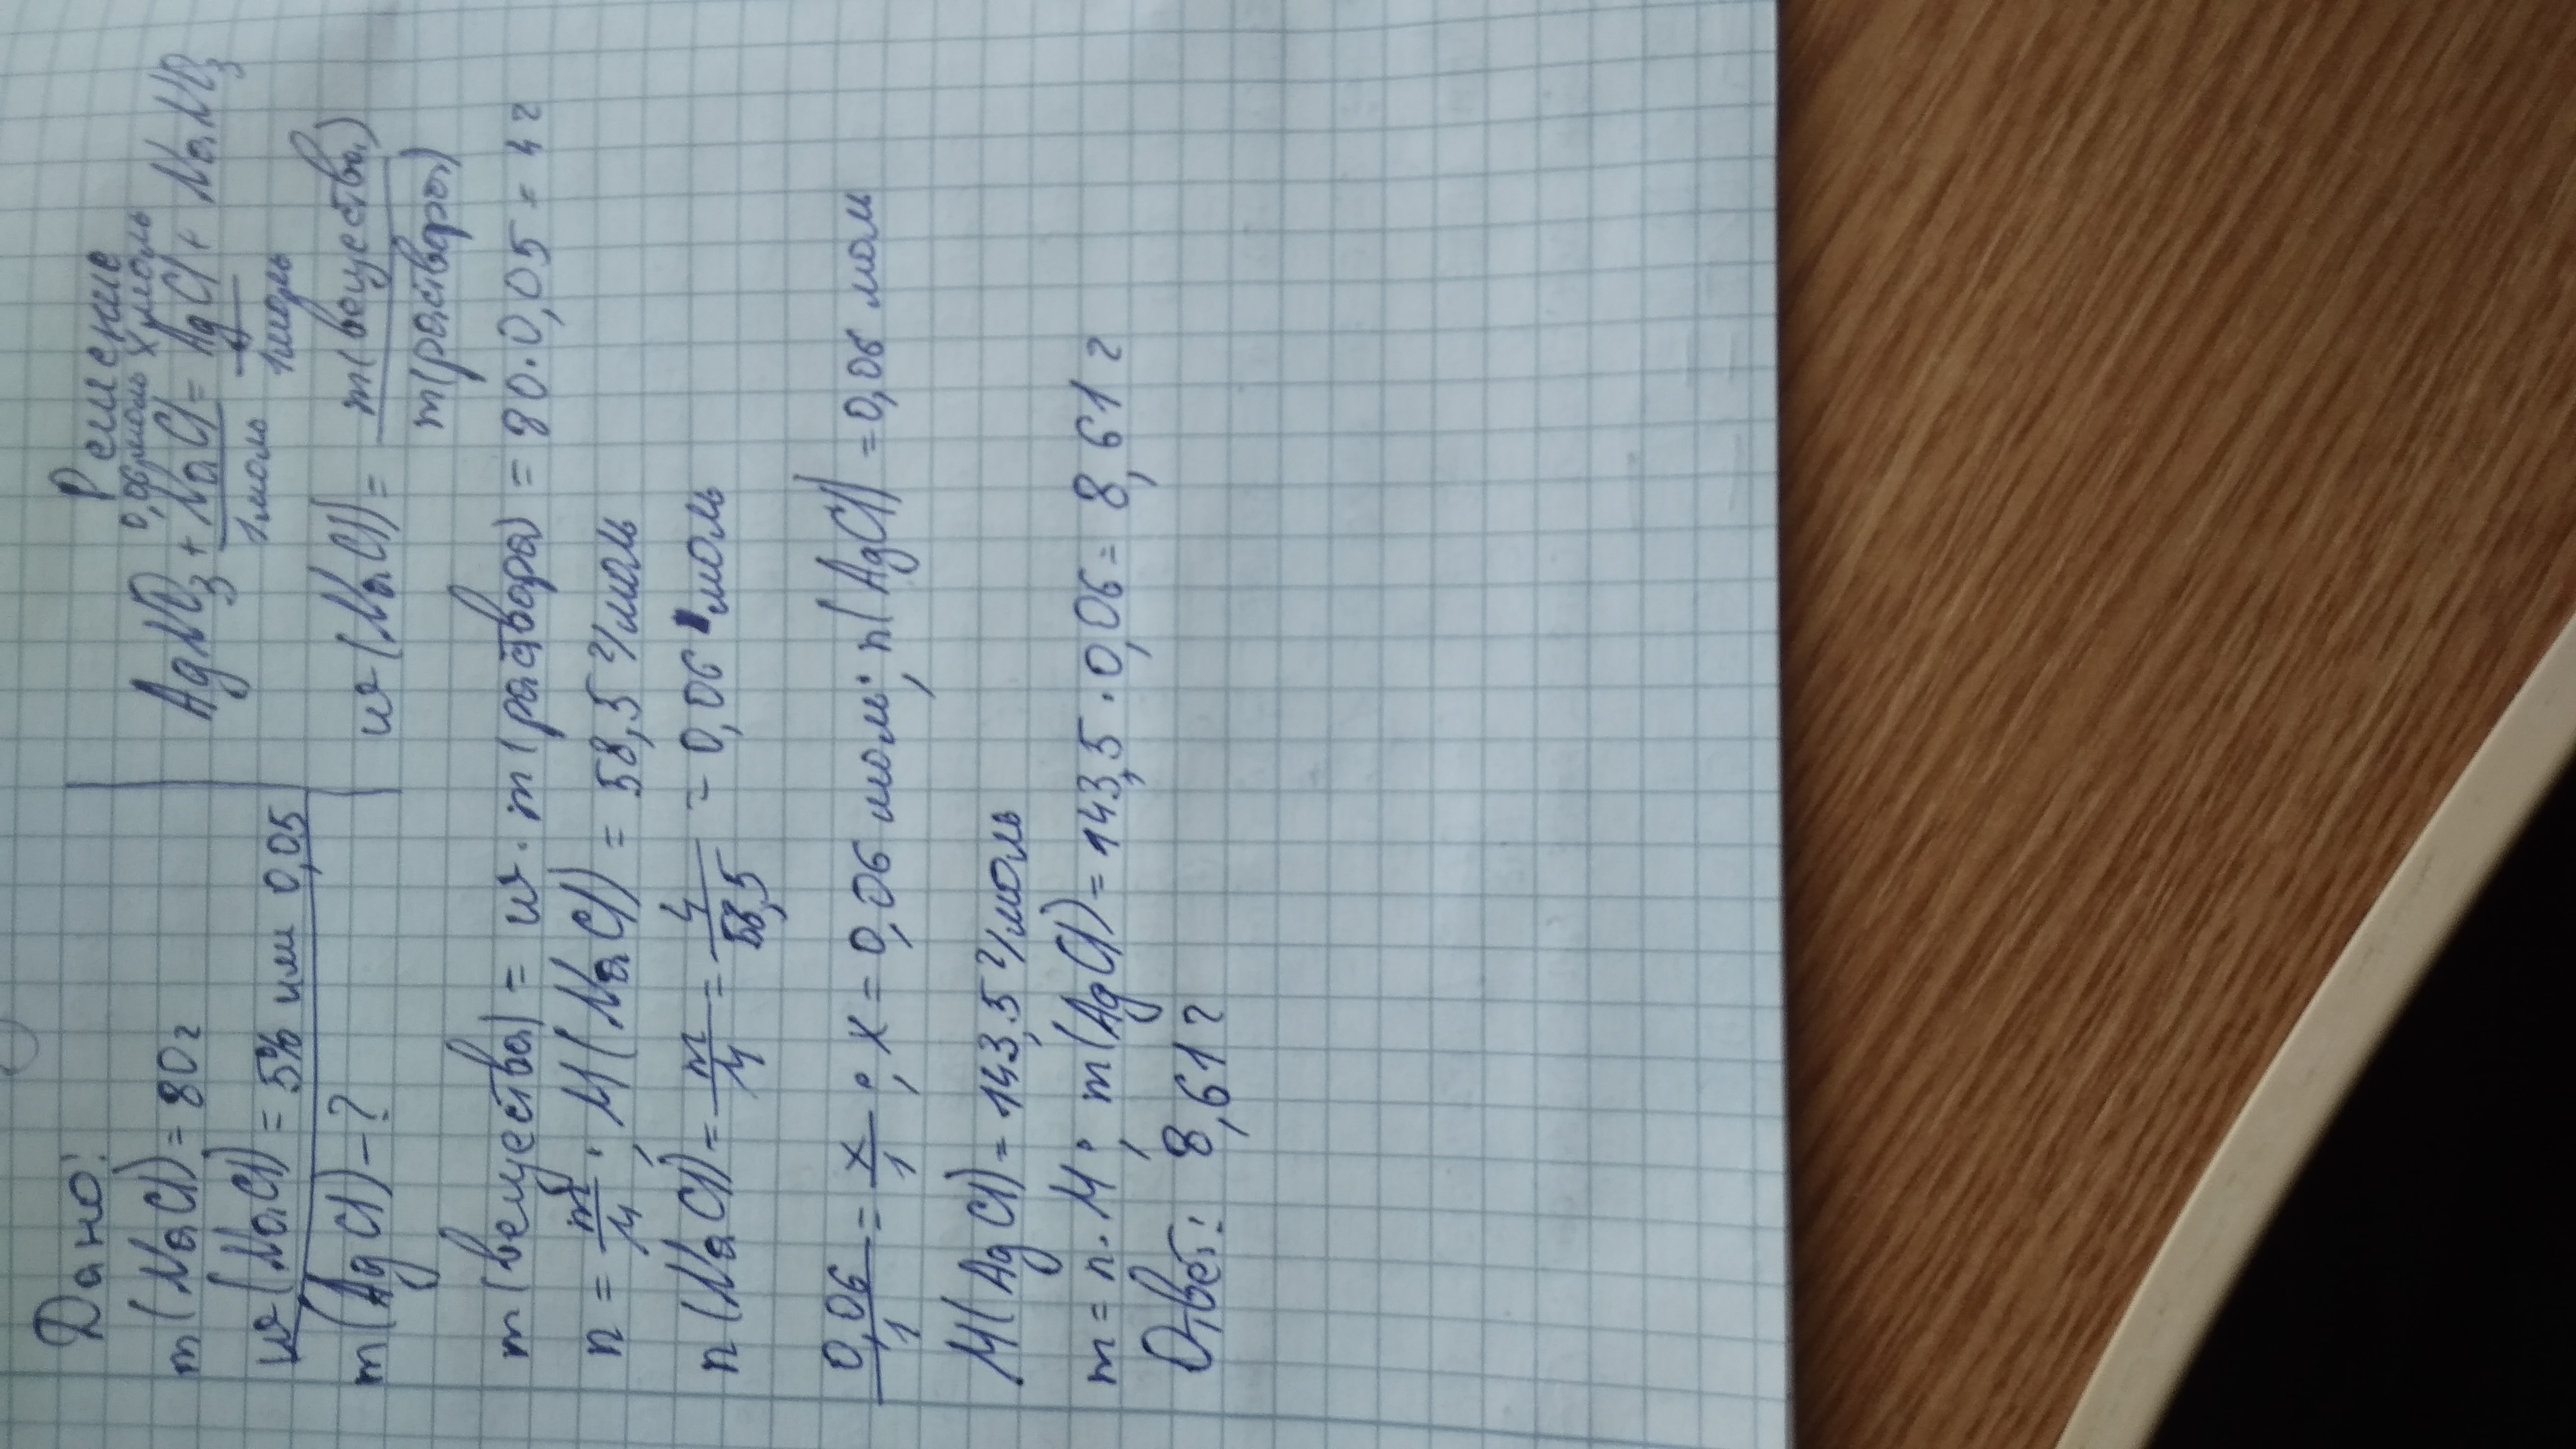 Дано:
m(NaCl)=80г
w(NaCl)=5% или 0,05
m(AgCl)-?
Решение
0,06моль х моль
AgNO3+NaCl=AgCl+NaNO3
1моль 1моль
w(NaCl)= m(вещества)
m(раствора)
m(вещества)=w·m(раствора)=80·0,05=4г
n=m/M; M(NaCl)=58,5г/моль
n(NaCl)=m/M=4/58,5=0,06моль
0,06/1=x/1; x=0,06 мол; n(AgCl)=0,06 мол
M(AgCl)=143,5г/моль
m=n·M; m(AgCl)=143,5·0,06=8,61г
Ответ: 8,61г